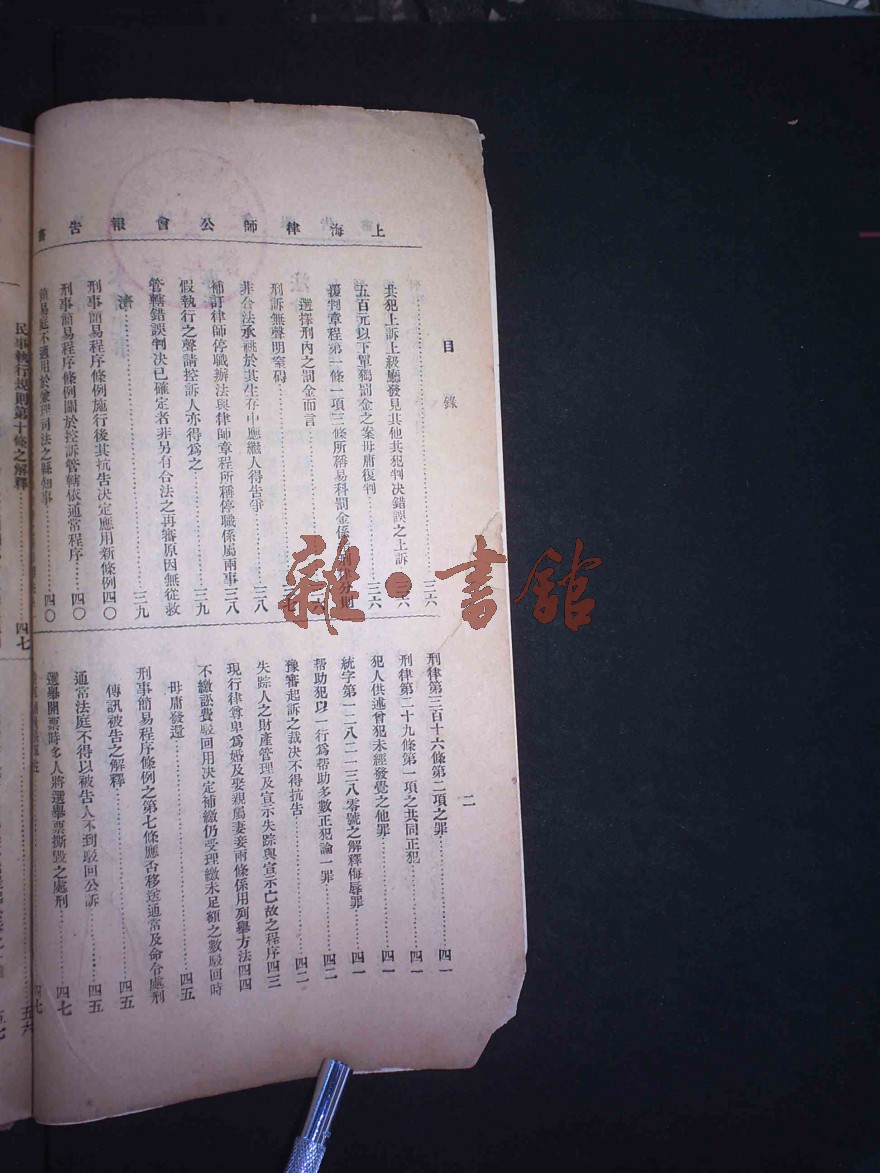 上海律師公會報告書
目錄
二
……三六
共犯上訴上級廳發見其他共犯判決錯誤之上訴……三六
五百元以下單獨罰金之案毋庸復判……三六
覆判章程第一條一項三條所稱易科罰金係刑律分則
選擇刑內之罰金而言
刑訴無聲明窒碍……三七
非合法承祧於其生存中應繼人得告爭……三八
補訂律師停職辦法與律師章程所稱停職係屬兩事……三八
假執行之聲請控訴人亦得爲之……三九
管轄錯誤判決已確定者非另有合法之再審原因無從救
濟……三九
刑事簡易程序條例施行後其抗告決定應用新條例四〇
刑事簡易程序條例關於控訴管轄依通常程序……四〇
簡易庭不適用於兼理司法之縣知事……四〇
刑律第三百十六條第二項之罪……四一
刑律第二十九條第一項之共同正犯……四一
犯人供述曾犯未經發覺之他罪……四一
統字第一二八二一三八零號之解釋侮辱罪……四一
幫助犯以一行爲幫助多數正犯論一罪……四二
豫審起訴之裁決不得抗告……四二
失踪人之財產管理及宣示失踪與宣示亡故之程序四三
現行律尊卑爲婚及娶親屬妻妾兩條係用列舉方法四四
不繳訟費駁回用決定補繳仍受理繳未足額之數駁回時
毋庸發還……四五
刑事簡易程序條例之第七條應否移送通常及命令處刑
傳訊被告之解釋……四五
通常法庭不得以被告人不到駁回公訴……四五
選舉開票時多人將選舉票撕毀之處刑……四七
民事執行規則第十條之解釋……四七
雜·書館